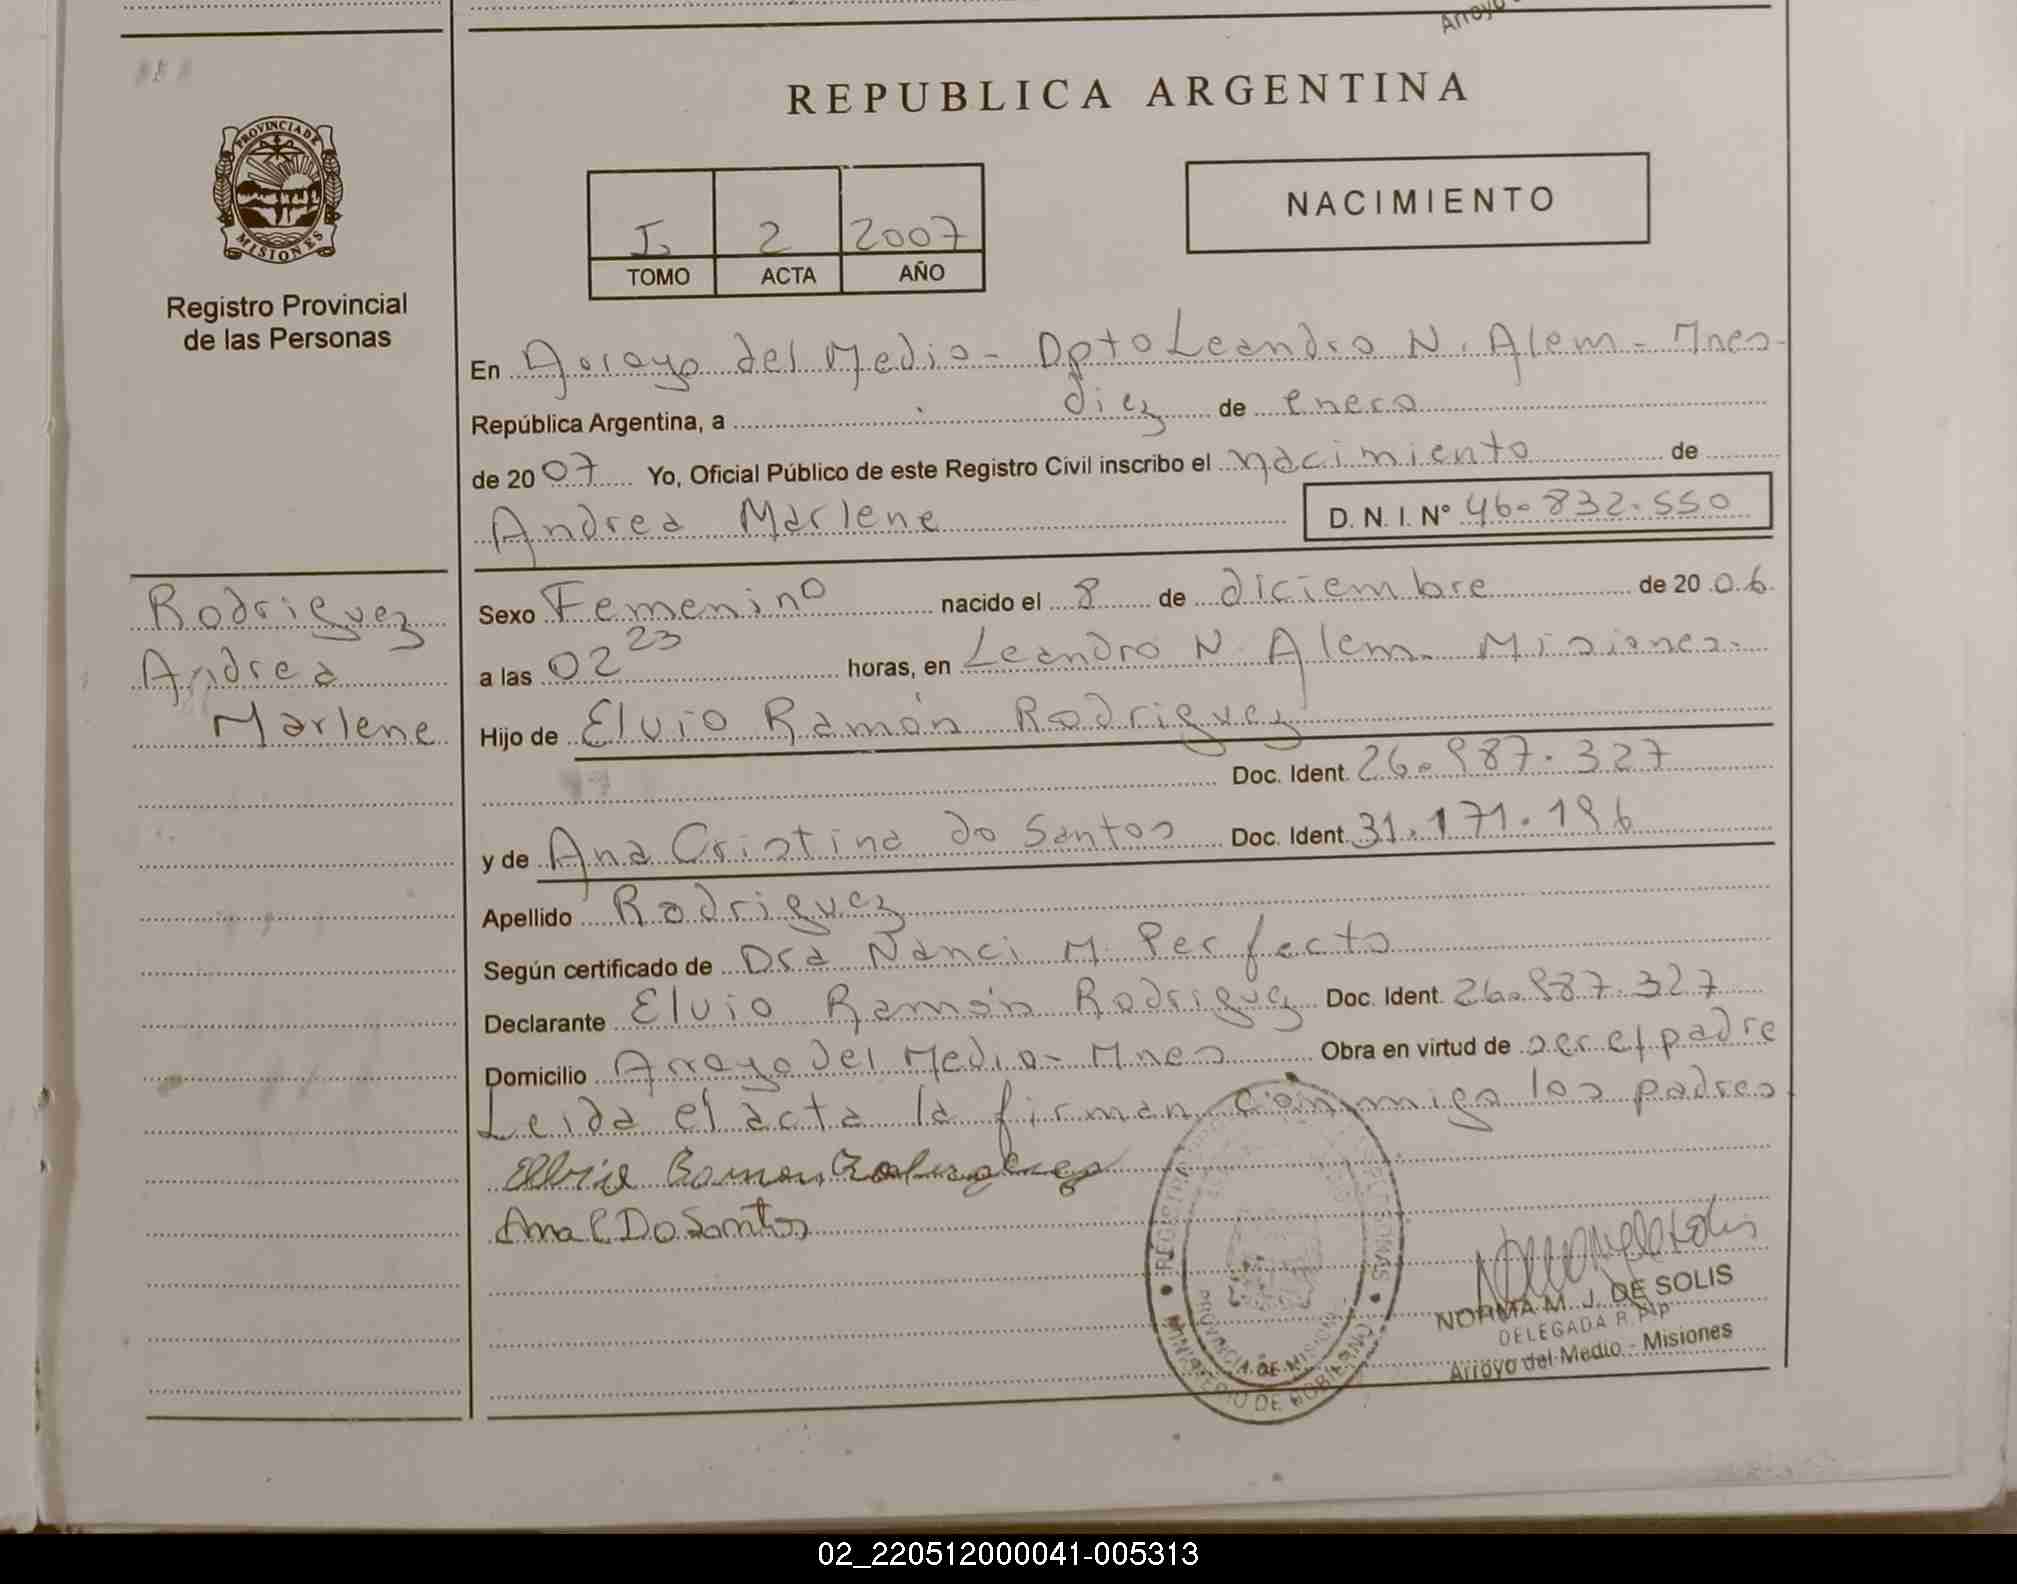 Arroyo
REPUBLICA ARGENTINA
PROVINCIA DE
MISIONES
Registro Provincial
de las Personas
I 2 2007
TOMO ACTA AÑO
NACIMIENTO
En Arroyo del Medio - Dpto Leandro N. Alem - Mnes-
República Argentina, a diez de enero
de 2007 Yo, Oficial Público de este Registro Civil inscribo el nacimiento de
Andrea Marlene D. N. I. N° 46.832.550
Rodriguez
Andrea
Marlene
Sexo Femenino nacido el 8 de diciembre de 2006.
a las 02 23 horas, en Leandro N. Alem - Misiones.-
Hijo de Elvio Ramón Rodriguez
Doc. Ident. 26.987.327
y de Ana Cristina do Santos Doc. Ident. 31.171.196
Apellido Rodriguez
Según certificado de Dra Nanci M. Perfecto
Declarante Elvio Ramón Rodriguez Doc. Ident. 26.987.327
Domicilio Arroyo del Medio - Mnes Obra en virtud de ser el padre
Leida el acta la firman conmigo los padres.
Elvio Ramon Rodriguez
Ana C Do Santos
PROVINCIA DE MISIONES
MINISTERIO DE GOBIERNO
NORMA M. J. DE SOLIS
DELEGADA R. P. P
Arroyo del Medio - Misiones
02_220512000041-005313